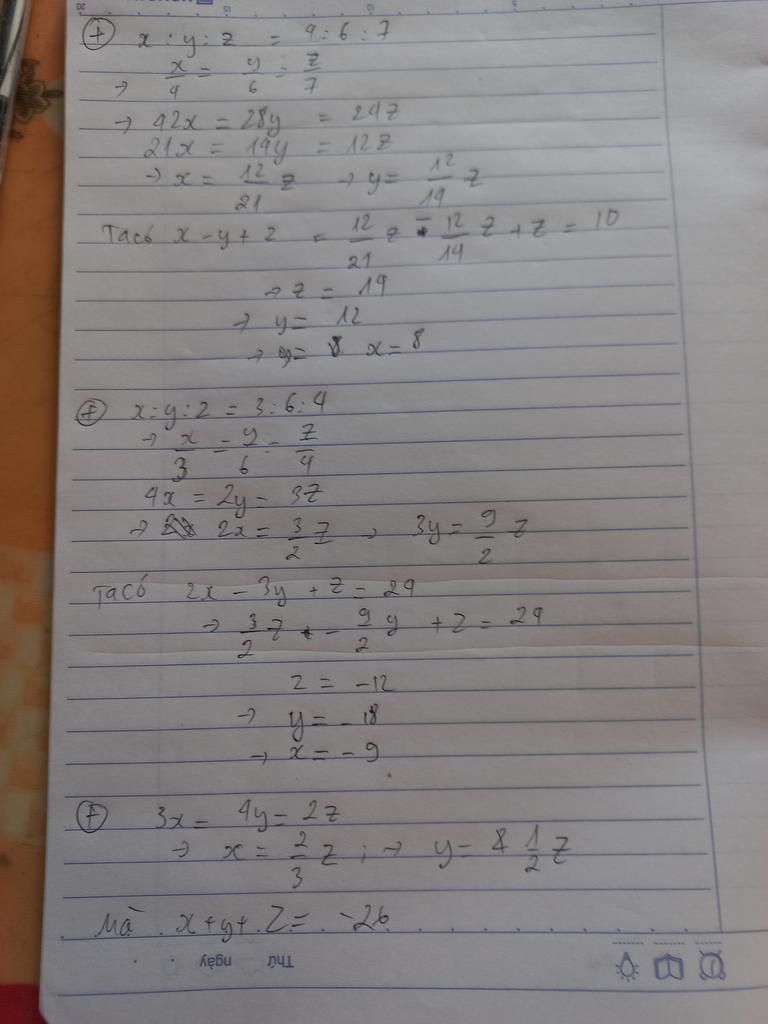 + x : y : z = 4 : 6 : 7
→ x/4 = y/6 = z/7
→ 42x = 28y = 24z
21x = 14y = 12z
→ x = 12/21 z → y = 12/14 z
Ta có x - y + z = 12/21 z - 12/14 z + z = 10
→ z = 14
→ y = 12
→ x = 8
+ x : y : z = 3 : 6 : 4
→ x/3 = y/6 = z/4
4x = 2y = 3z
→ 2x = 3/2 z → 3y = 9/2 z
Ta có 2x - 3y + z = 24
→ 3/2 z - 9/2 y + z = 24
z = -12
→ y = -18
→ x = -9
+ 3x = 4y = 2z
→ x = 2/3 z ; → y = 1/2 z
Mà x + y + z = -26
Thứ ngày